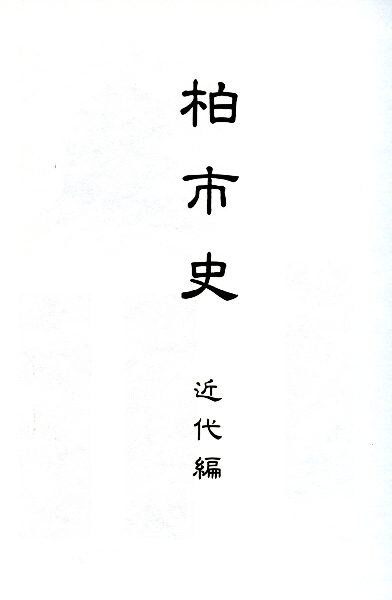 柏市史
近代編